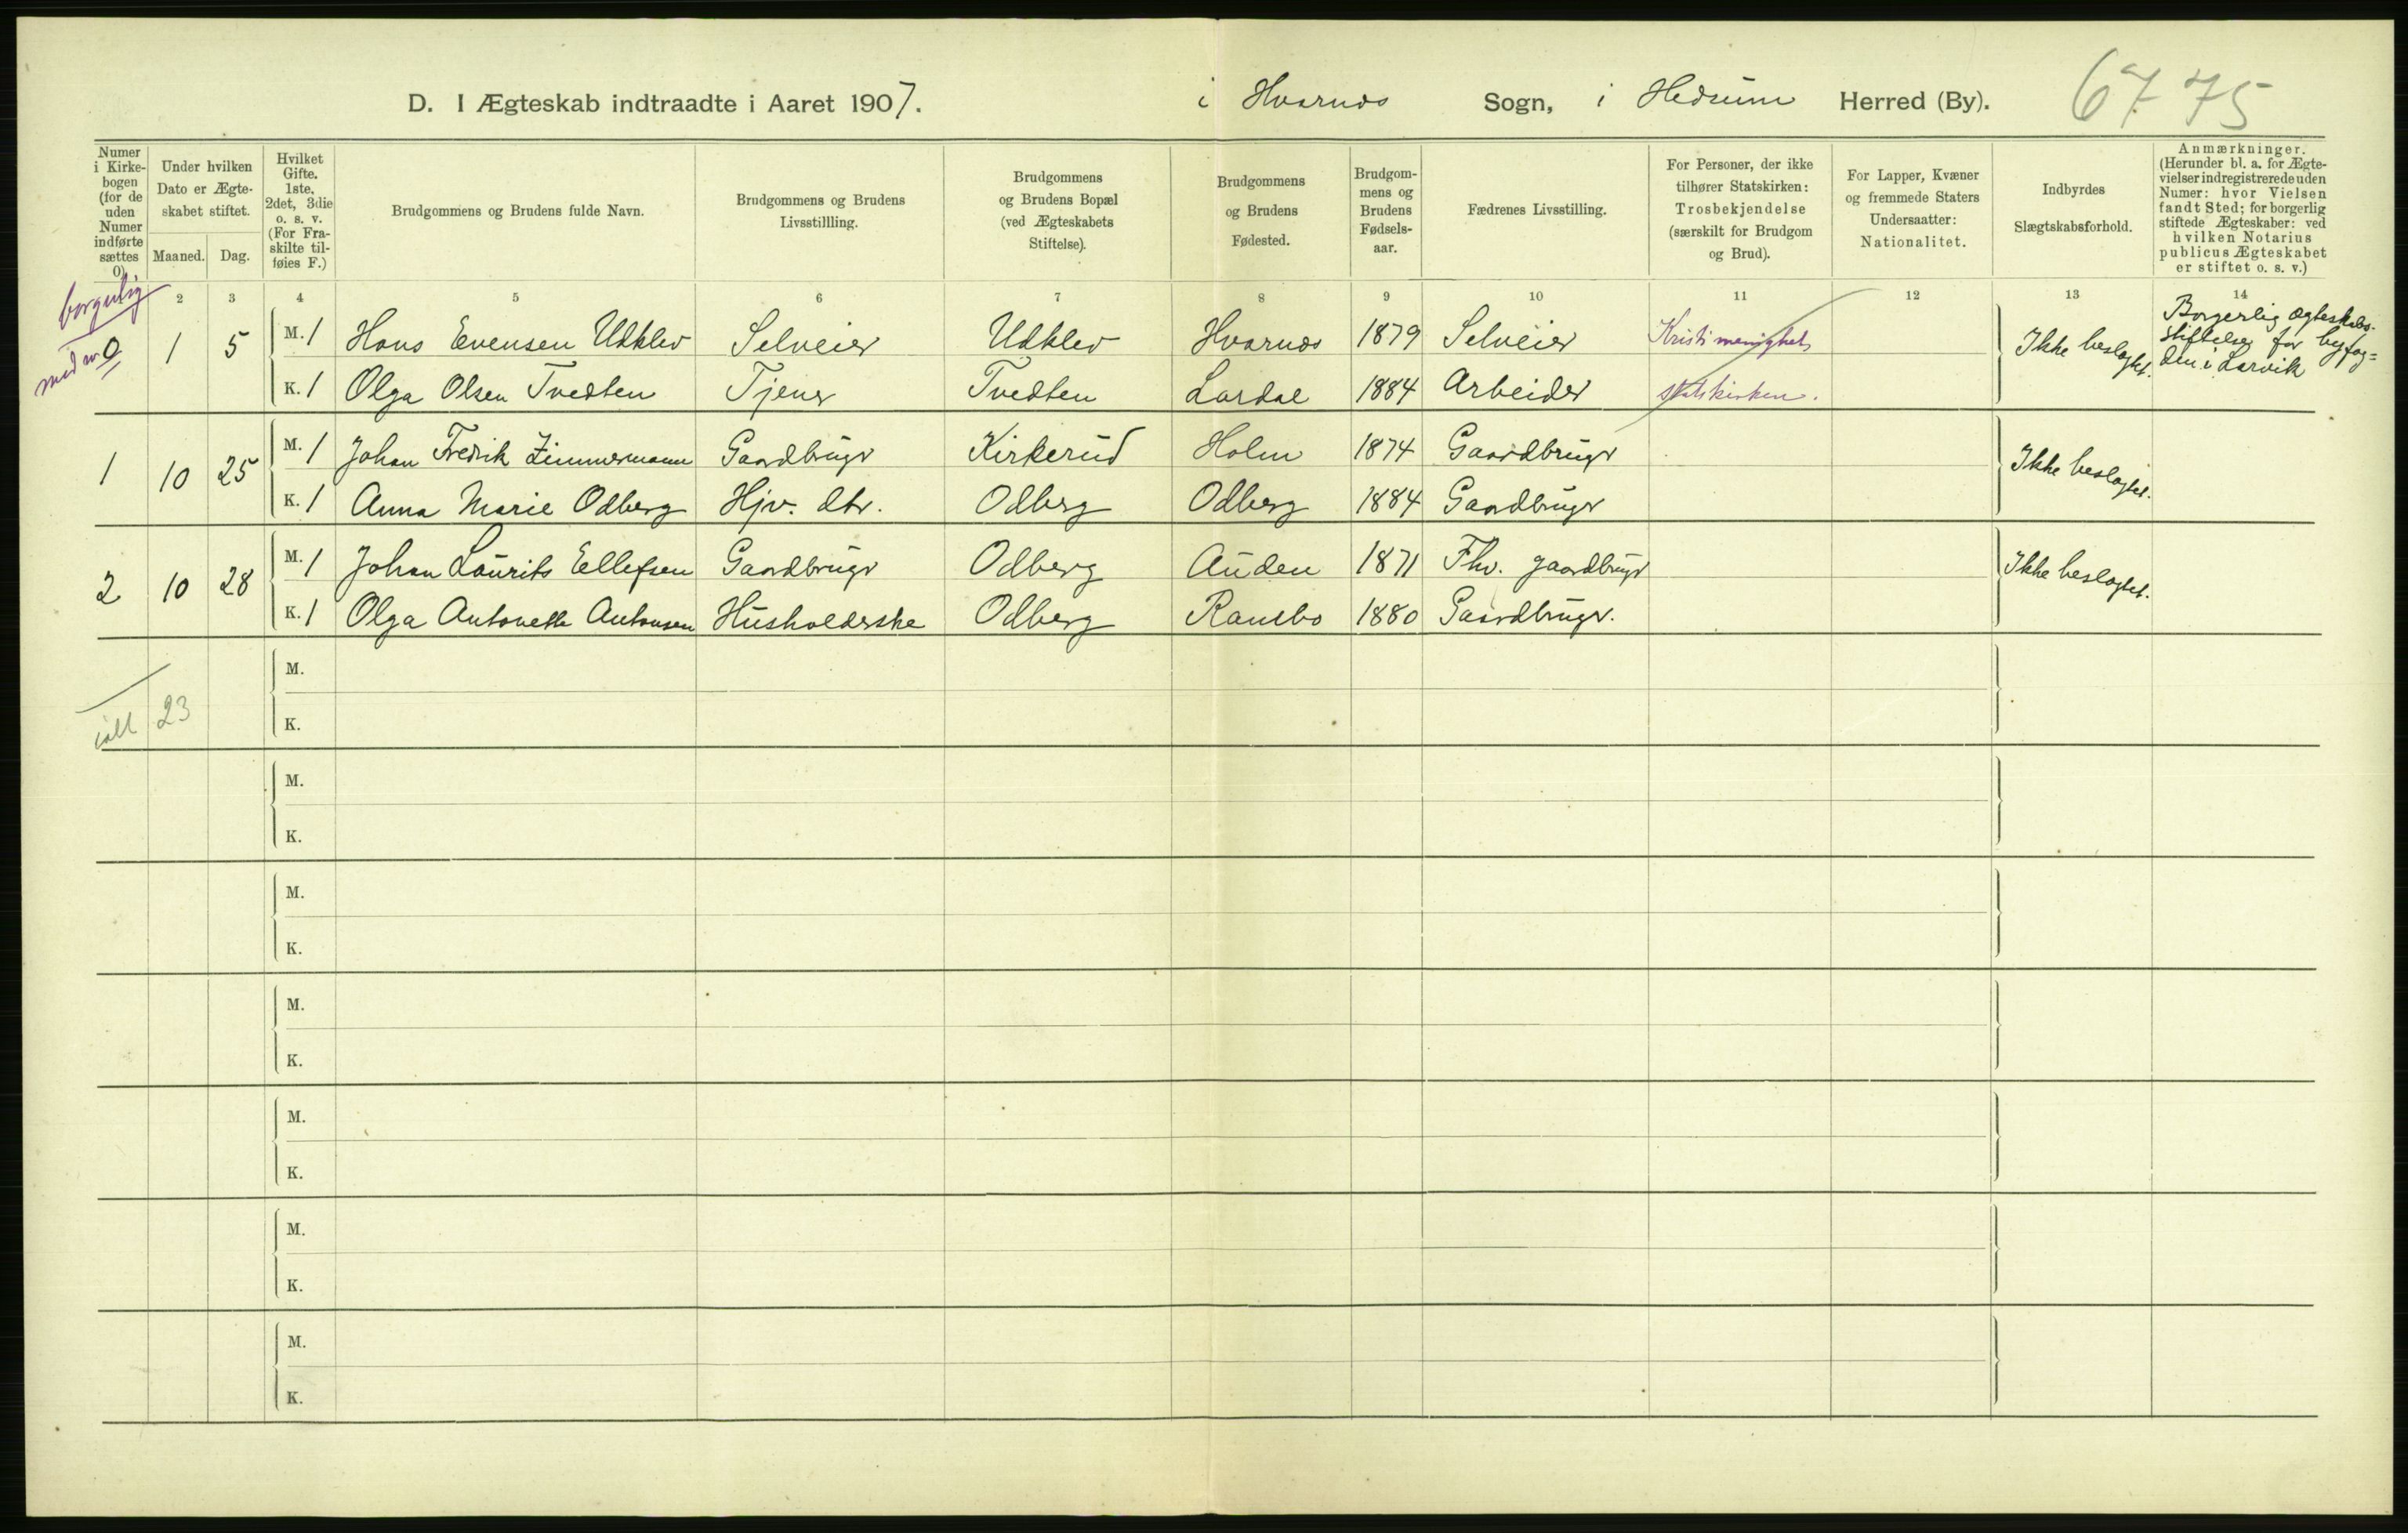 D. I Ægteskab indtraadte i Aaret 1907. i Hvarnes Sogn, i Hedrum Herred (By). 67. 75
Numer i Kirke-bogen (for de uden Numer indførte sættes 0).
Under hvilken Dato er Ægte-skabet stiftet.
Maaned. Dag.
Hvilket Gifte. 1ste, 2det, 3die o. s. v. (For Fra-skilte til-føies F.)
Brudgommens og Brudens fulde Navn.
Brudgommens og Brudens Livsstillling.
Brudgommens og Brudens Bopæl (ved Ægteskabets Stiftelse).
Brudgommens og Brudens Fødested.
Brudgom-mens og Brudens Fødsels-aar.
Fædrenes Livsstilling.
For Personer, der ikke tilhører Statskirken: Trosbekjendelse (særskilt for Brudgom og Brud).
For Lapper, Kvæner og fremmede Staters Undersaatter: Nationalitet.
Indbyrdes Slægtskabsforhold.
Anmærkninger. (Herunder bl. a. for Ægte-vielser indregistrerede uden Numer: hvor Vielsen fandt Sted; for borgerlig stiftede Ægteskaber: ved hvilken Notarius publicus Ægteskabet er stiftet o. s. v.)
2 3 4 5 6 7 8 9 10 11 12 13 14
borgerlig
med nr 0 1 5
M. 1 Hans Evensen Udklev Selveier Udklev Hvarnes 1879 Selveier Kristi menighet
K. 1 Olga Olsen Tvedten Tjener Tvedten Lardal 1884 Arbeider statskirken.
Ikke beslægtet.
Borgerlig ægteskabs-
stiftelse for byfog=
den i Larvik
1 10 25
M. 1 Johan Fredrik Zimmermann Gaardbruger Kirkerud Holm 1874 Gaardbruger
K. 1 Anna Marie Odberg Hjv. dtr. Odberg Odberg 1884 Gaardbruger
Ikke beslægtet.
2 10 28
M. 1 Johan Laurits Ellefsen Gaardbruger Odberg Auden 1871 Fhv. gaardbruger
K. 1 Olga Antonette Antonsen Husholderske Odberg Ramsbo 1880 Gaardbruger.
Ikke beslægtet.
M.
ialt 23
K.
M.
K.
M.
K.
M.
K.
M.
K.
M.
K.
M.
K.